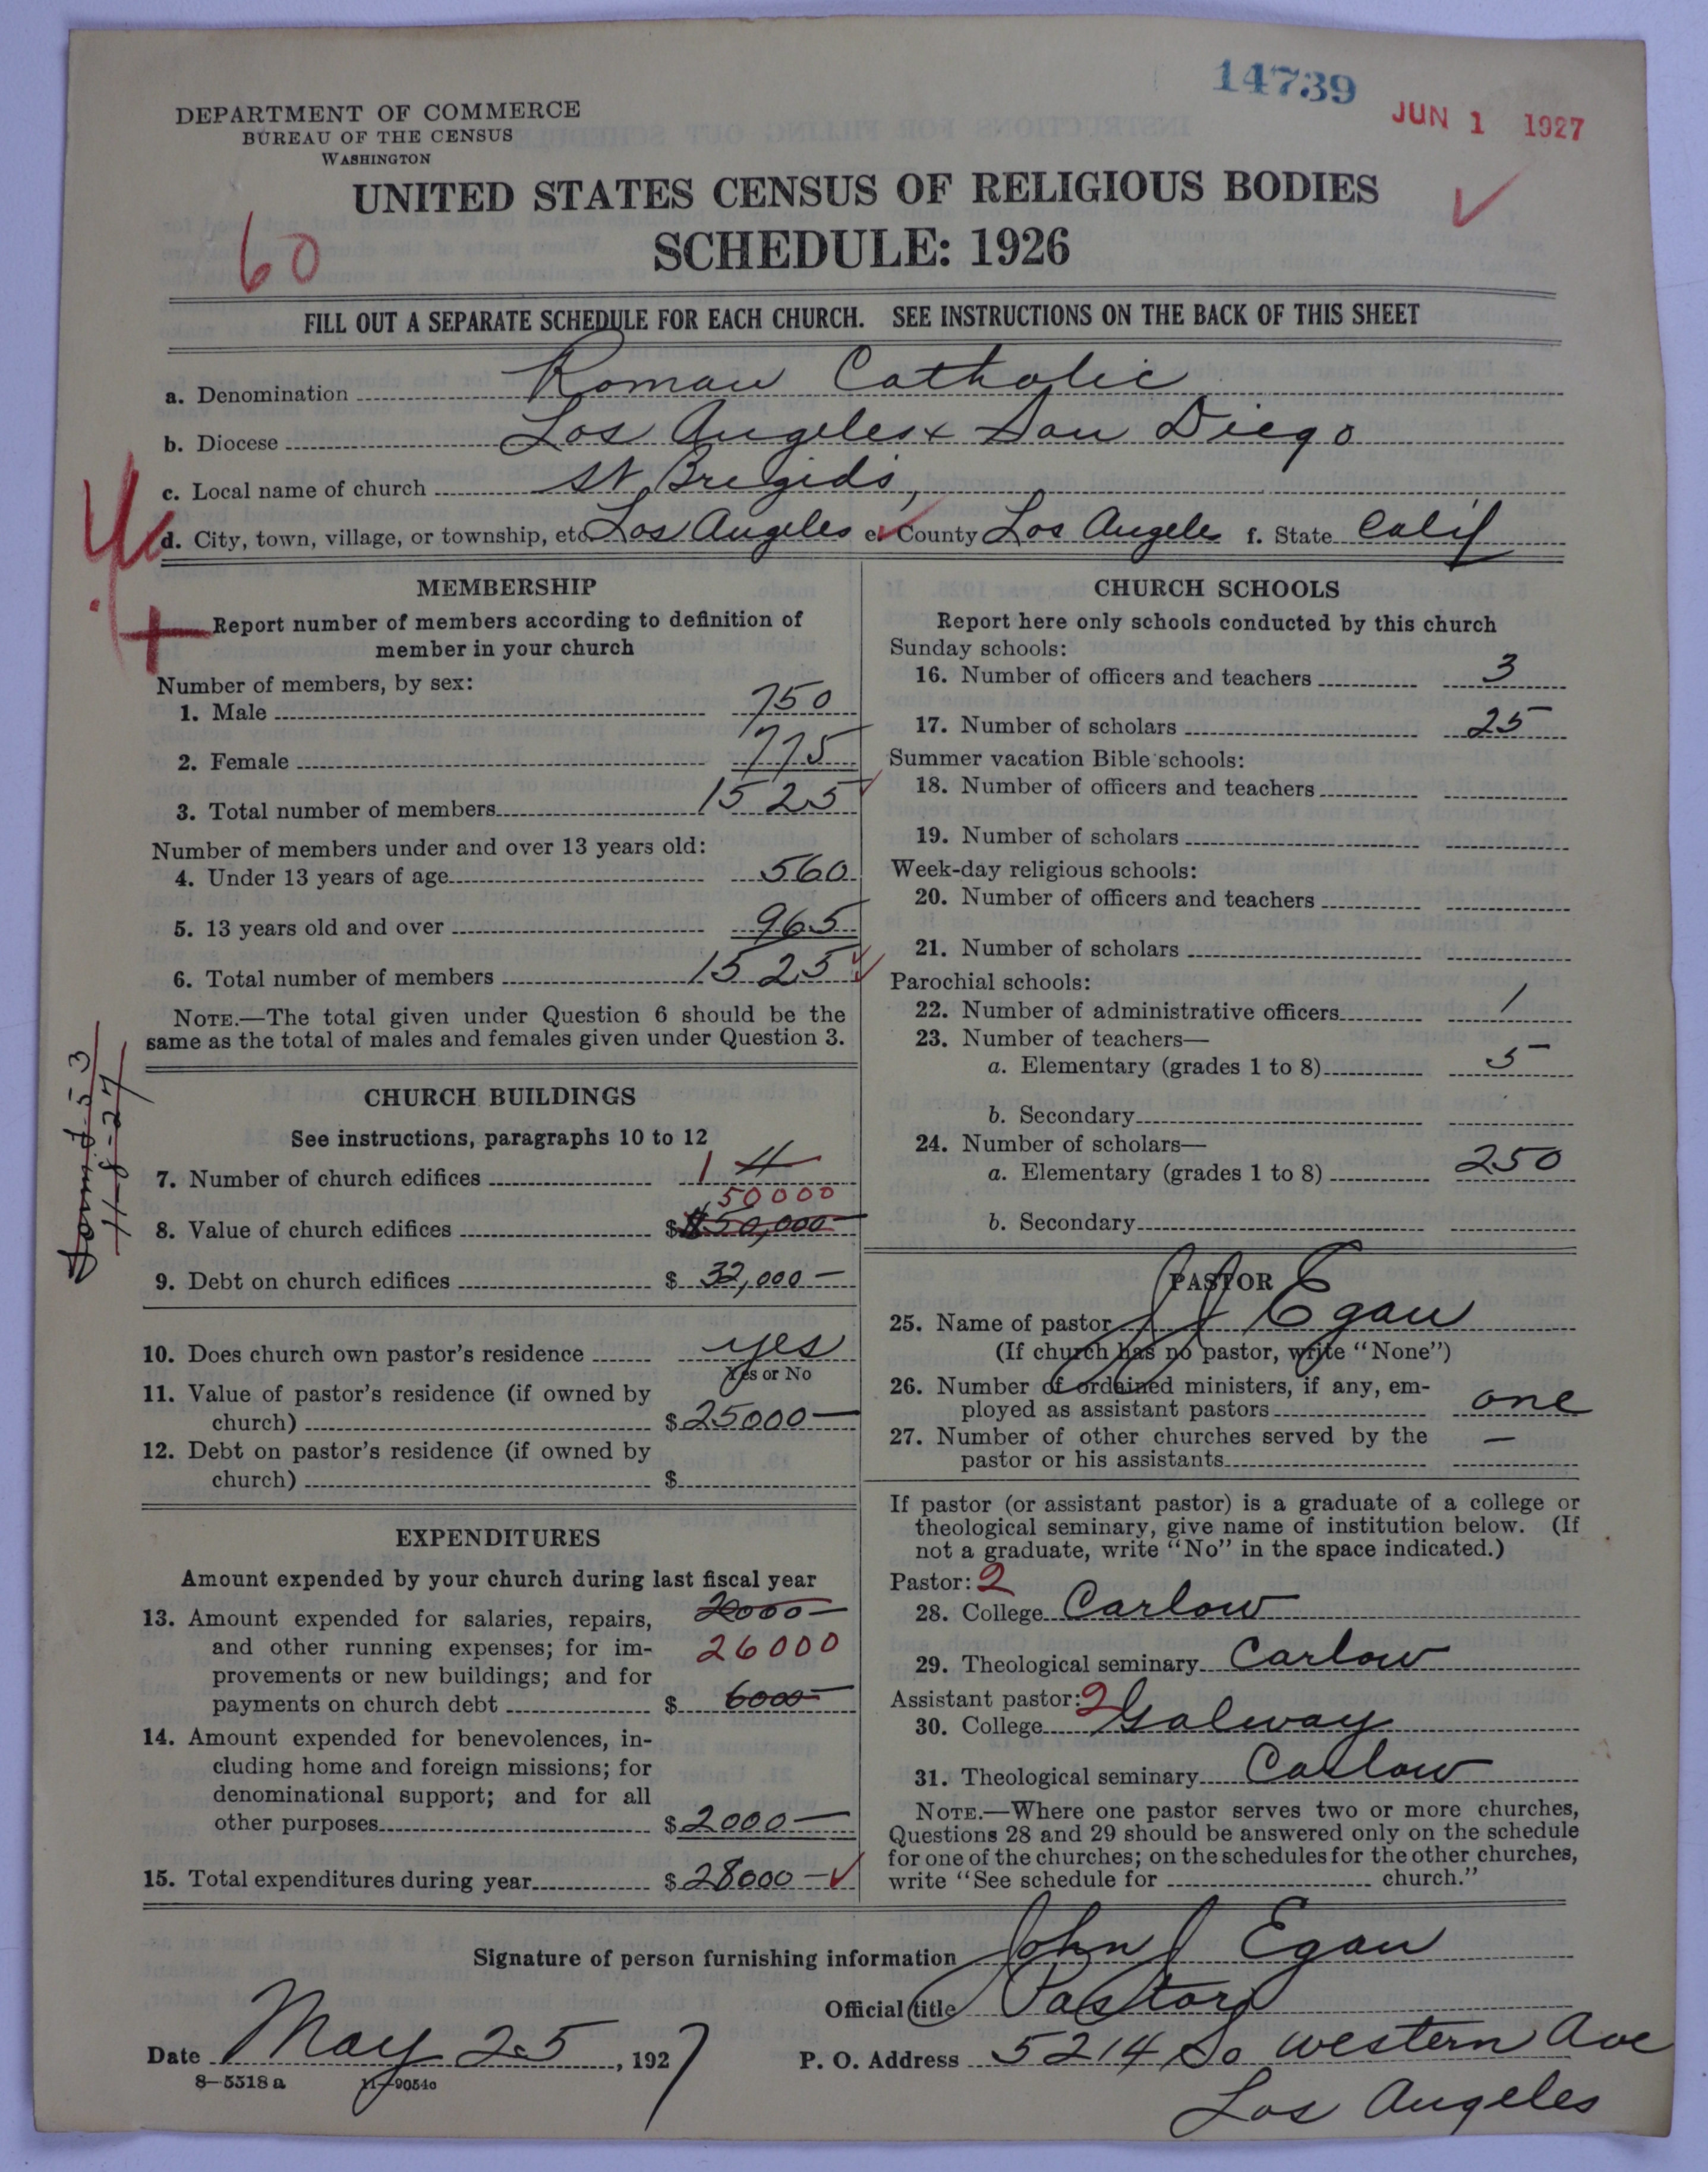 14739
JUN 1 1927
DEPARTMENT OF COMMERCE
BUREAU OF THE CENSUS
WASHINGTON
UNITED STATES CENSUS OF RELIGIOUS BODIES
SCHEDULE: 1926
60
FILL OUT A SEPARATE SCHEDULE FOR EACH CHURCH. SEE INSTRUCTIONS ON THE BACK OF THIS SHEET
a. Denomination Roman Catholic
b. Diocese Los Angeles & San Diego
c. Local name of church St. Bregids,
d. City, town, village, or township, etc. Los Angeles e. County Los Angeles f. State Calif
MEMBERSHIP
Report number of members according to definition of
member in your church
Number of members, by sex:
1. Male 750
2. Female 775
3. Total number of members 1525
Number of members under and over 13 years old:
4. Under 13 years of age 560
5. 13 years old and over 965
6. Total number of members 1525
NOTE.—The total given under Question 6 should be the
same as the total of males and females given under Question 3.
CHURCH BUILDINGS
See instructions, paragraphs 10 to 12
7. Number of church edifices 1 4
50000
8. Value of church edifices $ 50,000—
9. Debt on church edifices $ 32,000—
10. Does church own pastor's residence yes
Yes or No
11. Value of pastor's residence (if owned by
church) $ 25000—
12. Debt on pastor's residence (if owned by
church) $
EXPENDITURES
Amount expended by your church during last fiscal year
13. Amount expended for salaries, repairs, 20000—
and other running expenses; for im- 26000
provements or new buildings; and for
payments on church debt $ 6000—
14. Amount expended for benevolences, in-
cluding home and foreign missions; for
denominational support; and for all
other purposes $ 2000—
15. Total expenditures during year $ 28000—
CHURCH SCHOOLS
Report here only schools conducted by this church
Sunday schools:
16. Number of officers and teachers 3
17. Number of scholars 25
Summer vacation Bible schools:
18. Number of officers and teachers
19. Number of scholars
Week-day religious schools:
20. Number of officers and teachers
21. Number of scholars
Parochial schools:
22. Number of administrative officers 1
23. Number of teachers—
a. Elementary (grades 1 to 8) 5
b. Secondary
24. Number of scholars—
a. Elementary (grades 1 to 8) 250
b. Secondary
PASTOR
25. Name of pastor J J Egan
(If church has no pastor, write "None")
26. Number of ordained ministers, if any, em-
ployed as assistant pastors one
27. Number of other churches served by the —
pastor or his assistants
If pastor (or assistant pastor) is a graduate of a college or
theological seminary, give name of institution below. (If
not a graduate, write "No" in the space indicated.)
Pastor: 2
28. College Carlow
29. Theological seminary Carlow
Assistant pastor: 2
30. College Galway
31. Theological seminary Carlow
NOTE.—Where one pastor serves two or more churches,
Questions 28 and 29 should be answered only on the schedule
for one of the churches; on the schedules for the other churches,
write "See schedule for church."
Signature of person furnishing information John J Egan
Official title Pastor
Date May 25, 1927
P. O. Address 5214 So Western Ave
Los Angeles
8—5518 a 11—9054o
11-8-27